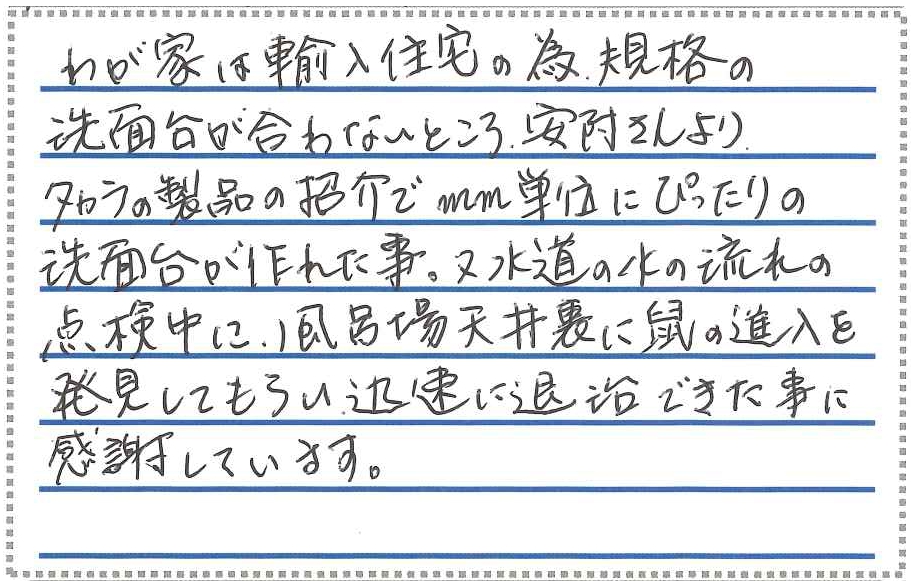 わが家は輸入住宅の為、規格の
洗面台が合わないところ、安附さんより、
タカラの製品の招介でmm単位にぴったりの
洗面台が作れた事。又水道の水の流れの
点検中に、風呂場天井裏に鼠の進入を
発見してもらい、迅速に退治できた事に
感謝しています。